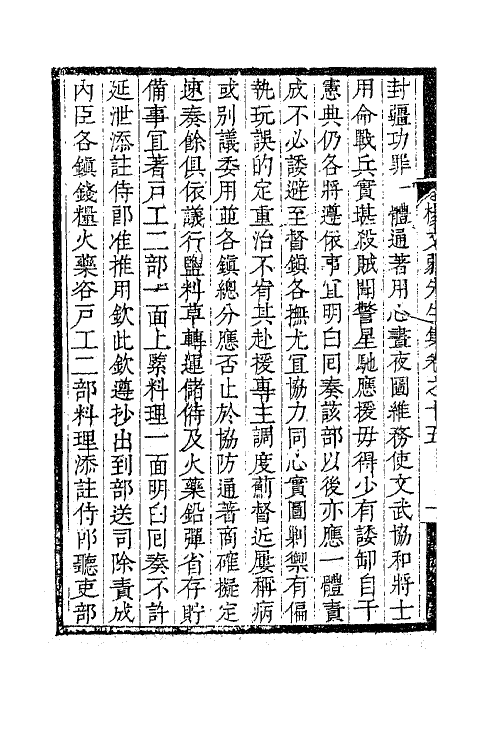 封疆功罪一體通著用心晝夜圖維務使文武協和將士
用命戰兵實堪殺賊聞警星馳應援毋得少有諉卸自干
憲典仍各將遵依事宜明白囘奏該部以後亦應一體責
成不必諉避至督鎭各撫尤宜協力同心實圖剿禦有偏
執玩誤的定重治不宥其赴援專主調度薊督近屢稱病
或别議委用並各鎭總分應否止於協防通著商確擬定
速奏餘俱依議行鹽料草轉運儲偫及火藥鉛彈省存貯
備事宜著戸工二部一面上緊料理一面明白囘奏不許
延泄添註侍郎准推用欽此欽遵抄出到部送司除責成
内臣各鎭錢糧火藥咨戸工二部料理添註侍郎聽吏部
楊文弱先生集卷之十五
一